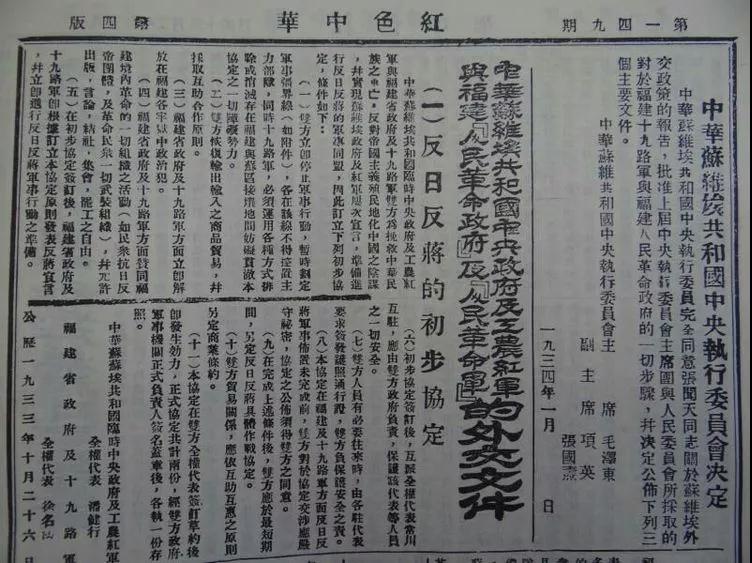 第一四九期
紅色中華
第四版
中華蘇維埃共和國中央執行委員會決定
中華蘇維埃共和國中央執行委員完全同意張聞天同志關於蘇維埃外
交政策的報告，批准上屆中央執行委員會主席團與人民委員會所採取的
對於福建十九路軍與福建人民革命政府的一切步驟，并決定公佈下列三
個主要文件。
中華蘇維共和國中央執行委員會主席 毛澤東
副主席 項英
張國燾
一九三四年一月 日
中華蘇維埃共和國中央政府及工農紅軍
與福建『人民革命政府』及『人民革命軍』的外交文件
（一）反日反蔣的初步協定
中華蘇維埃共和國臨時中央政府及工農紅
軍與福建省政府及十九路軍雙方為挽救中華民
族之危亡，反對帝國主義殖民地化中國之陰謀
，并實現蘇維埃政府及紅軍屢次宣言，準備進
行反日反蔣的軍事同盟，因此訂立下列初步協
定，條件如下：
（一）雙方立卽停止軍事行動，暫時劃定
軍事疆界線（如附件），各在該線不得控置主
力部隊，同時十九路軍，必須運用各種方式排
除或消滅存在福建與蘇區接壤地間妨礙貫澈本
協定之一切障礙勢力。
（二）雙方恢復輸出輸入之商品貿易，并
採取互助合作原則。
（三）福建省政府及十九路軍方面立卽解
放在福建各牢獄中政治犯。
（四）福建省政府及十九路軍方面贊同福
建境內革命的一切組織之活動（如民衆抗日反
帝團體，及革命民衆一切武裝組織），并允許
出版，言論，結社，集會，罷工之自由。
（五）在初步協定簽訂後，福建省政府及
十九路軍卽根據訂立本協定原則發表反蔣宣言
，并立卽進行反日反蔣軍事行動之準備。
（六）初步協定簽訂後，互派全權代表常川
互駐，應由雙方政府負責，保護該代表等人員
之一切安全。
（七）雙方人員有必要往來時，由各駐代表
要求簽發護照通行證，雙方負保護安全之責。
（八）本協定在福建及十九路軍方面反日反
蔣軍事佈置未完成前，雙方對於協定交涉應嚴
守祕密，協定之公佈須得雙方之同意。
（九）在完成上述條件後，雙方應於最短期
間，另定反日反蔣具體作戰協定。
（十）雙方貿易關係，應依互助互惠之原則
另定商業條約。
（十一）本協定在雙方全權代表簽訂草約後
卽發生効力，正式協定共計兩份，經雙方政府
軍事機關正式負責人簽名蓋章後，各執一份存
照。
中華蘇維埃共和國臨時中央政府及工農紅軍
全權代表 潘健行
福建省政府及十九路軍
全權代表 徐名鴻
公歷一九三三年十月二十六日